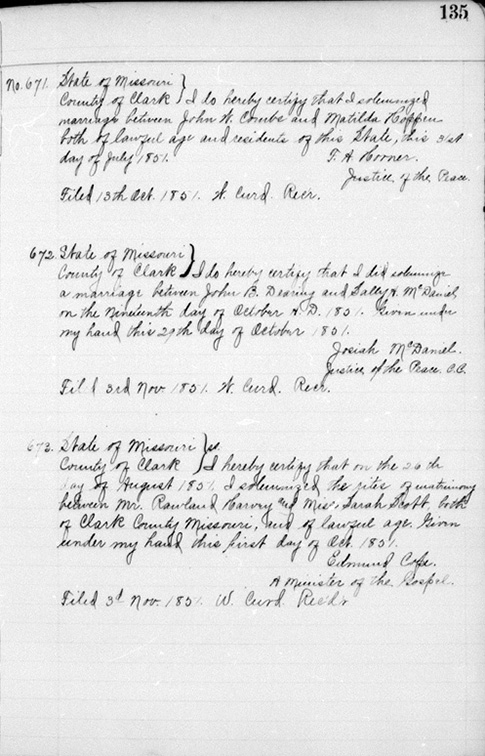 135
No. 671. State of Missouri }
County of Clark } I do hereby certify that I solemnized
marriage between John W. Combs and Matilda Hoppen
both of lawful age and residents of this State, this 31st
day of July 1851. T. H. Horner.
Justice of the Peace.
Filed 13th Oct. 1851. W. Curd. Recr.
672. State of Missouri }
County of Clark } I do hereby certify that I did solemnize
a marriage between John B. Dearing and Sally A. McDaniel,
on the Nineteenth day of October A.D. 1851. Given under
my hand this 29th day of October 1851.
Josiah McDaniel.
Justice of the Peace. C.C.
Fil d 3rd Nov. 1851. W. Curd. Recr.
673. State of Missouri } ss.
County of Clark } I hereby certify that on the 26th
day of August 1851, I solemnized the rites of matrimony
between Mr. Rawland Harvey and Miss. Sarah Scott, both
of Clark County Missouri, and of lawful age. Given
under my hand this first day of Oct. 1851.
Edmund
A Minister of the Gospel.
Filed 3d Nov. 1851. W. Curd. Rec'd'r